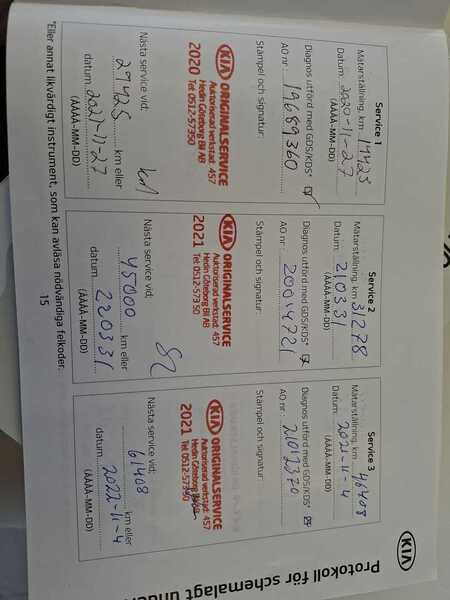 KIA
Protokoll för schemalagt under
Service 1
Mätarställning, km 14425
Datum: 2020-11-27
(ÅÅÅÅ-MM-DD)
Diagnos utförd med GDS/KDS*
AO nr: 19689360
Stämpel och signatur:
KIA ORIGINALSERVICE
Auktoriserad verkstad. 457
Hedin Göteborg Bil AB
2020 Tel 0512-57350
Nästa service vid:
29425 km eller
datum 2021-11-27
(ÅÅÅÅ-MM-DD)
Service 2
Mätarställning, km 31278
Datum: 210331
(ÅÅÅÅ-MM-DD)
Diagnos utförd med GDS/KDS*
AO nr: 20014721
Stämpel och signatur:
KIA ORIGINALSERVICE
Auktoriserad verkstad. 457
Hedin Göteborg Bil AB
2021 Tel 0512-57350
Nästa service vid:
45000 km eller
datum 220331
(ÅÅÅÅ-MM-DD)
Service 3
Mätarställning, km 46408
Datum: 2021-11-4
(ÅÅÅÅ-MM-DD)
Diagnos utförd med GDS/KDS*
AO nr: 21012370
Stämpel och signatur:
KIA ORIGINALSERVICE
Auktoriserad verkstad. 457
Hedin Göteborg Bil AB
2021 Tel 0512-57350
Nästa service vid:
61408 km eller
datum: 2022-11-4
(ÅÅÅÅ-MM-DD)
*Eller annat likvärdigt instrument, som kan avläsa nödvändiga felkoder.
15